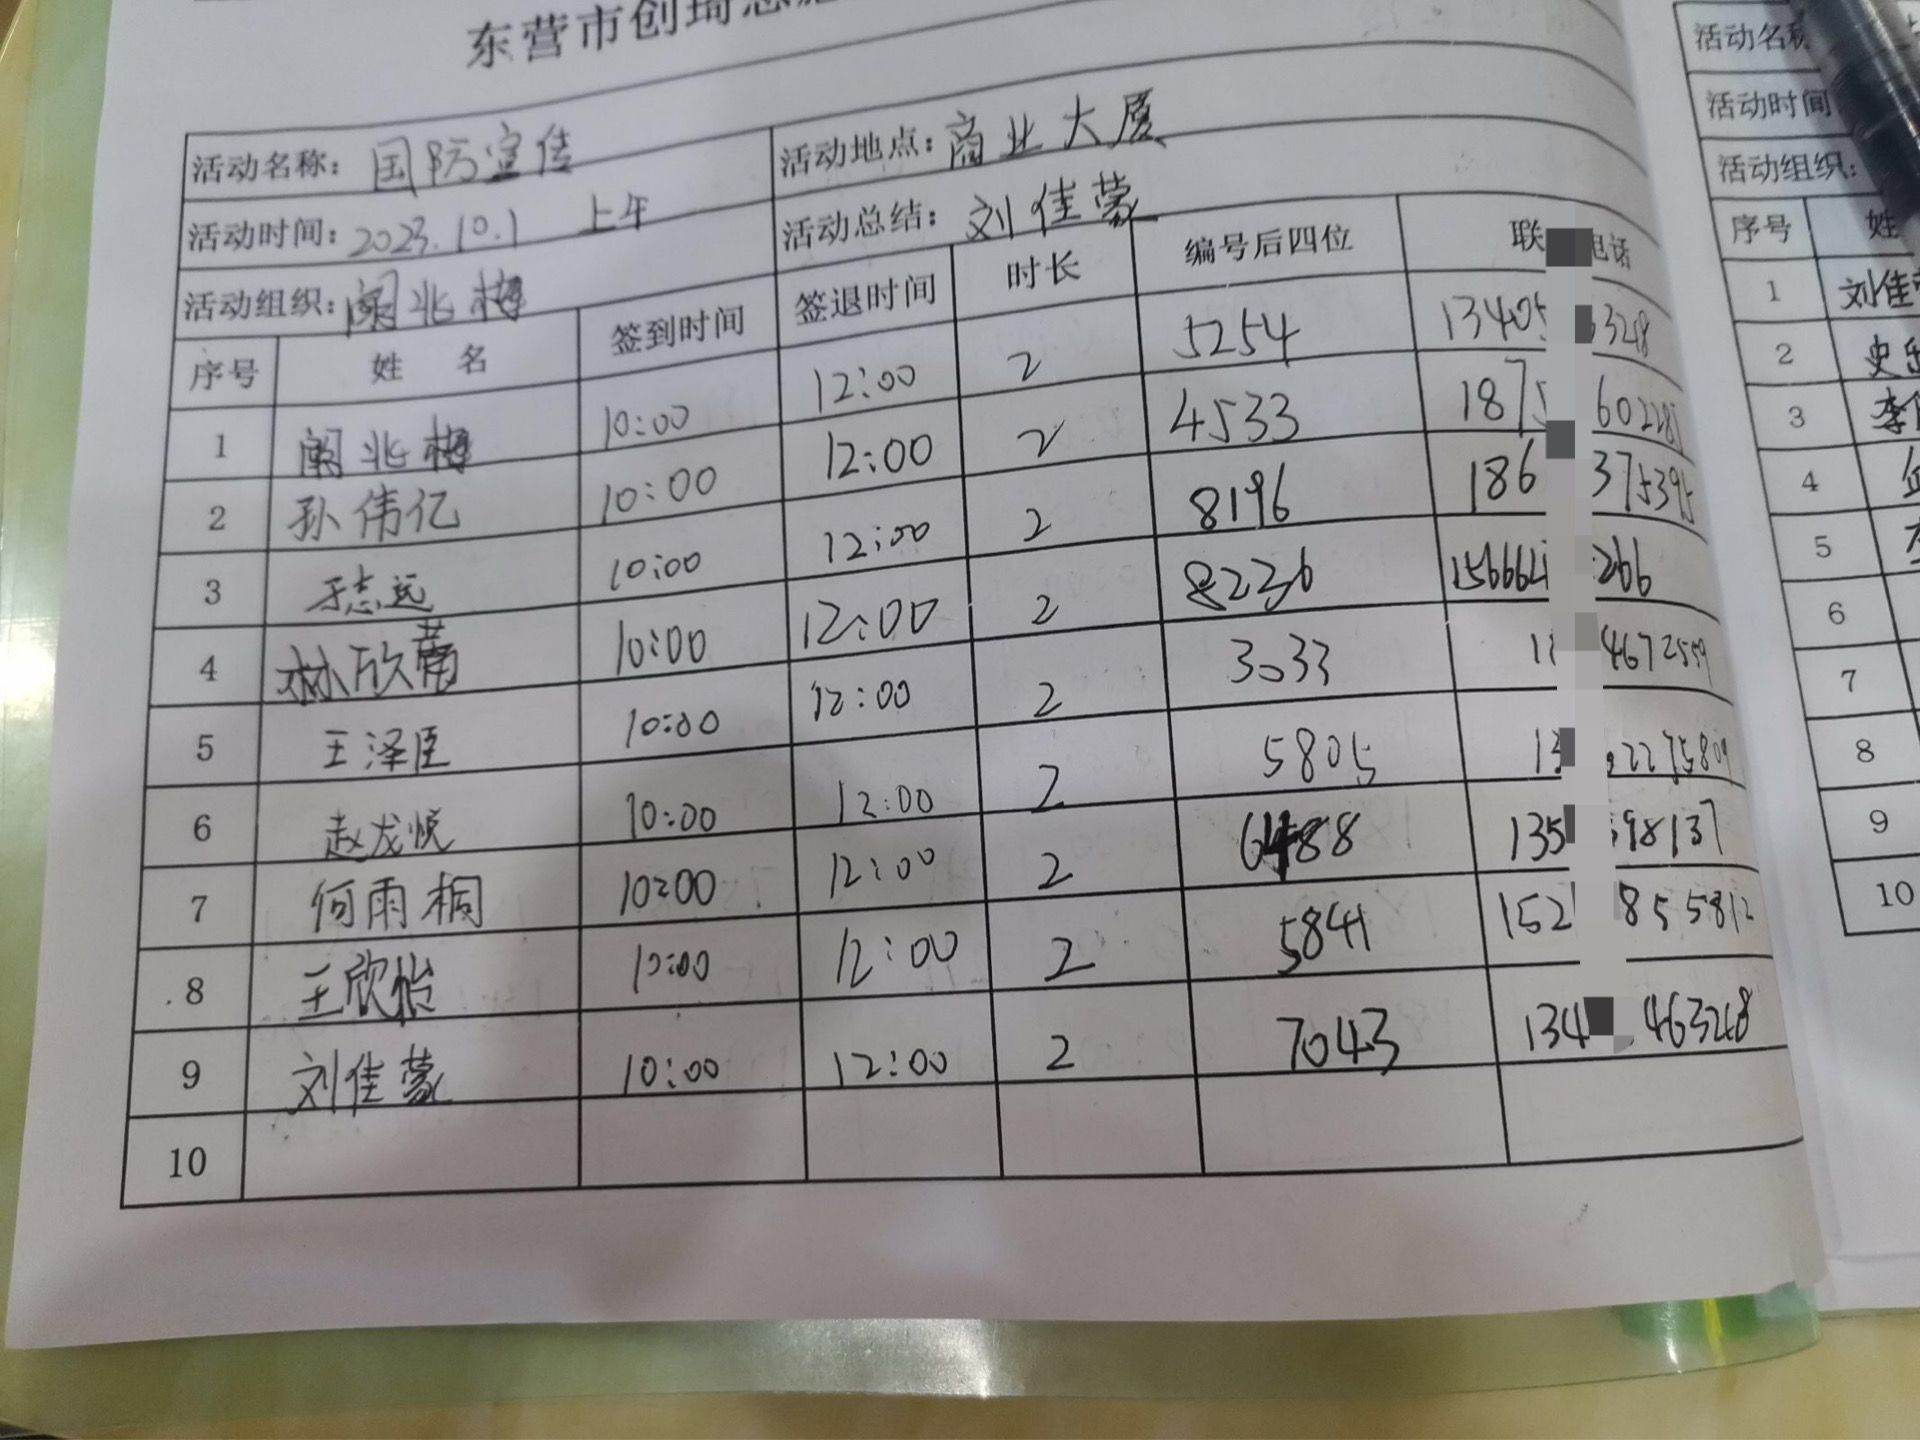 东营市创琦志愿
活动名称：国防宣传 活动地点：商业大厦
活动时间：2023.10.1 上午 活动总结：刘佳蒙
活动组织：阚兆梅
序号 姓 名 签到时间 签退时间 时长 编号后四位 联 电话
1 阚兆梅 10:00 12:00 2 5254 13405 6328
2 孙伟亿 10:00 12:00 2 4533 187 602285
3 于志远 10:00 12:00 2 8196 186 375395
4 林欣蓓 10:00 12:00 2 8236 156664 266
5 王泽臣 10:00 12:00 2 3033 4672559
6 赵龙悦 10:00 12:00 2 5805 13 2275809
7 何雨桐 10:00 12:00 2 6488 135 598137
8 王欣怡 10:00 12:00 2 5841 152 855812
9 刘佳蒙 10:00 12:00 2 7043 134 463268
10
活动名称
活动时间
活动组织:
序号 姓
1 刘佳
2 史
3 李
4
5
6
7
8
9
10